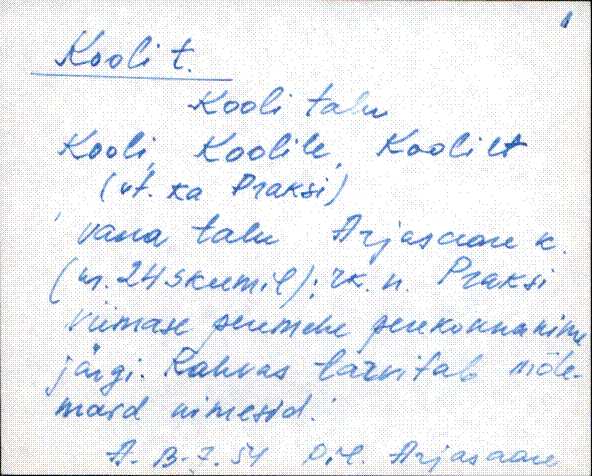 Kooli t.
Kooli talu
Kooli, Koolile, Koolilt
(vt. ka Praksi)
vana talu Arjassaare k.
(nr. 24 skeemil); rk. n. Praksi
viimase peremehe perekonnanime
järgi. Rahvas tarvitab mõle-
maid nimesid.
54 Arjassaare